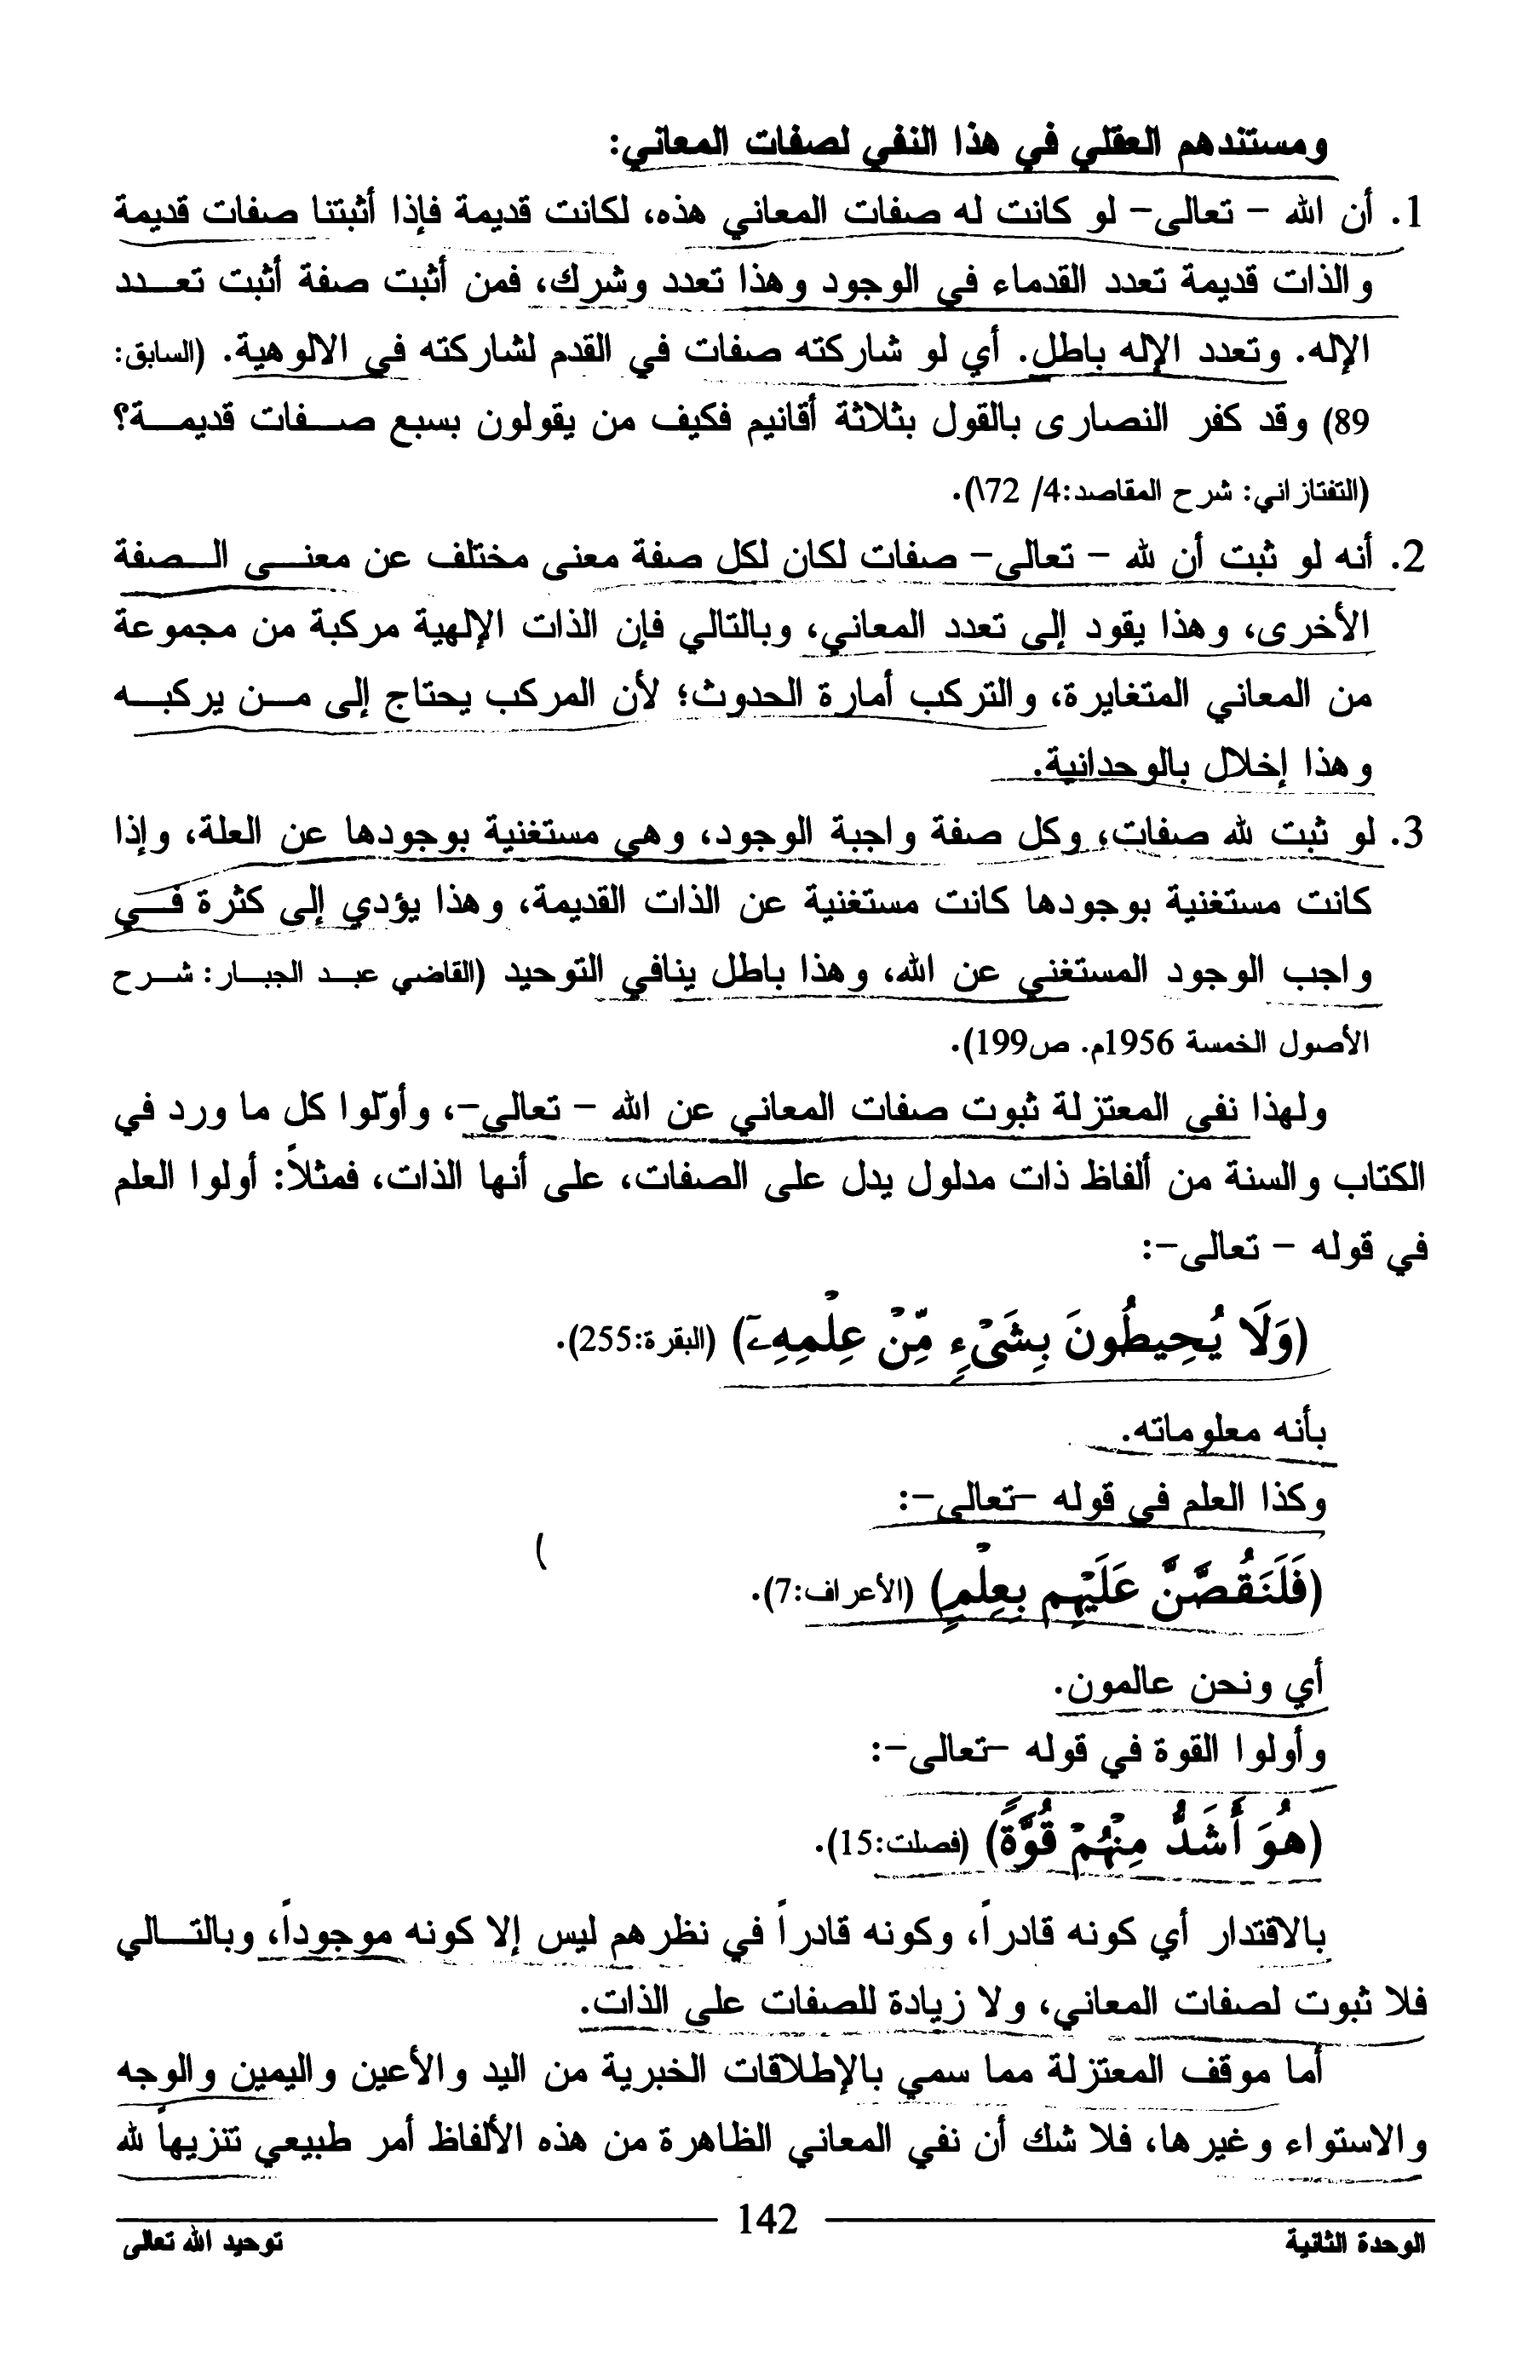 ومستندهم العقلي في هذا النفي لصفات المعاني:
1. أن الله - تعالى- لو كانت له صفات المعاني هذه، لكانت قديمة فإذا أثبتنا صفات قديمة
والذات قديمة تعدد القدماء في الوجود وهذا تعدد وشرك، فمن أثبت صفة أثبت تعـــدد
الإله. وتعدد الإله باطل. أي لو شاركته صفات في القدم لشاركته في الالوهية. (السابق:
89) وقد كفر النصارى بالقول بثلاثة أقانيم فكيف من يقولون بسبع صـــفات قديمـــة؟
(التفتازاني: شرح المقاصد:4/ 72\).
2. أنه لو ثبت أن لله - تعالى- صفات لكان لكل صفة معنى مختلف عن معنـــى الـــصفة
الأخرى، وهذا يقود إلى تعدد المعاني، وبالتالي فإن الذات الإلهية مركبة من مجموعة
من المعاني المتغايرة، والتركب أمارة الحدوث؛ لأن المركب يحتاج إلى مـــن يركبـــه
وهذا إخلال بالوحدانية.
3. لو ثبت لله صفات، وكل صفة واجبة الوجود، وهي مستغنية بوجودها عن العلة، وإذا
كانت مستغنية بوجودها كانت مستغنية عن الذات القديمة، وهذا يؤدي إلى كثرة فـــي
واجب الوجود المستغني عن الله، وهذا باطل ينافي التوحيد (القاضي عبـــد الجبـــار: شـــرح
الأصول الخمسة 1956م. ص199).
ولهذا نفى المعتزلة ثبوت صفات المعاني عن الله - تعالى-، وأوّلوا كل ما ورد في
الكتاب والسنة من ألفاظ ذات مدلول يدل على الصفات، على أنها الذات، فمثلاً: أولوا العلم
في قوله - تعالى-:
(وَلَا يُحِيطُونَ بِشَيْءٍ مِّنْ عِلْمِهِۦٓ) (البقرة:255).
بأنه معلوماته.
وكذا العلم في قوله -تعالى-:
(فَلَنَقُصَّنَّ عَلَيْهِم بِعِلْمٍ) (الأعراف:7).
أي ونحن عالمون.
وأولوا القوة في قوله -تعالى-:
(هُوَ أَشَدُّ مِنْهُمْ قُوَّةً) (فصلت:15).
بالاقتدار أي كونه قادراً، وكونه قادراً في نظرهم ليس إلا كونه موجوداً، وبالتـــالي
فلا ثبوت لصفات المعاني، ولا زيادة للصفات على الذات.
أما موقف المعتزلة مما سمي بالإطلاقات الخبرية من اليد والأعين واليمين والوجه
والاستواء وغيرها، فلا شك أن نفي المعاني الظاهرة من هذه الألفاظ أمر طبيعي تنزيهاً لله
142
الوحدة الثانية
توحيد الله تعالى